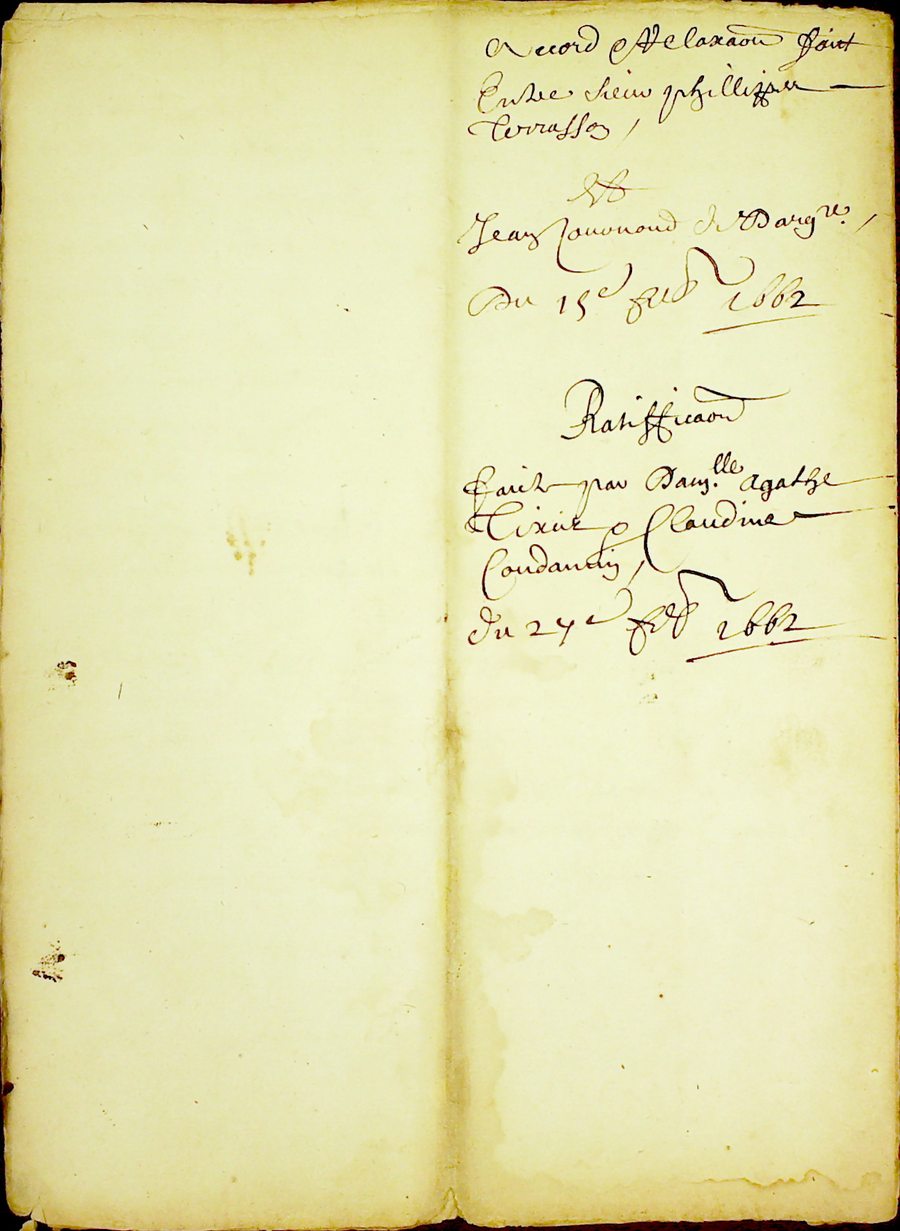 Accord & Relaxaon faict
Entre sieur phillippes
Terrasson,
Et
Jean
Du 15e feb 1662
Ratifficaon
faicte par Dam.lle agathe
Tixier & Claudine
Condamin,
du 27e feb 1662